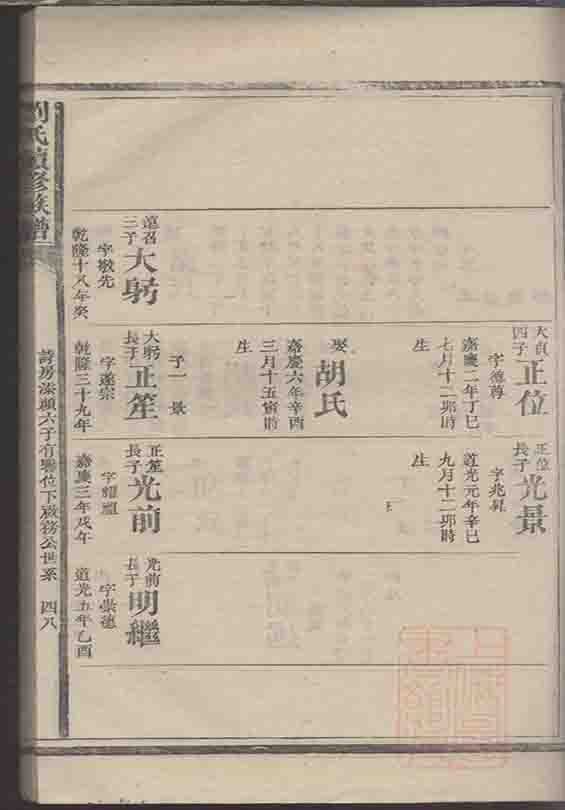 遠召
三子
大躬
字敬先
乾隆十八年癸
大貞
四子
正位
字德尊
嘉慶二年丁巳
七月十二卯時
生
娶
胡氏
嘉慶六年辛酉
三月十五寅時
生
子一 景
大躬
長子
正笙
字蓬宗
乾隆三十九年
正位
長子
光景
字兆昇
道光元年辛巳
九月十二卯時
生
正笙
長子
光前
字耀
嘉慶三年戊午
光前
長子
明繼
字崇德
道光五年乙酉
劉氏續修族譜
詩房 顯六子有譽位下 務公世系 四八